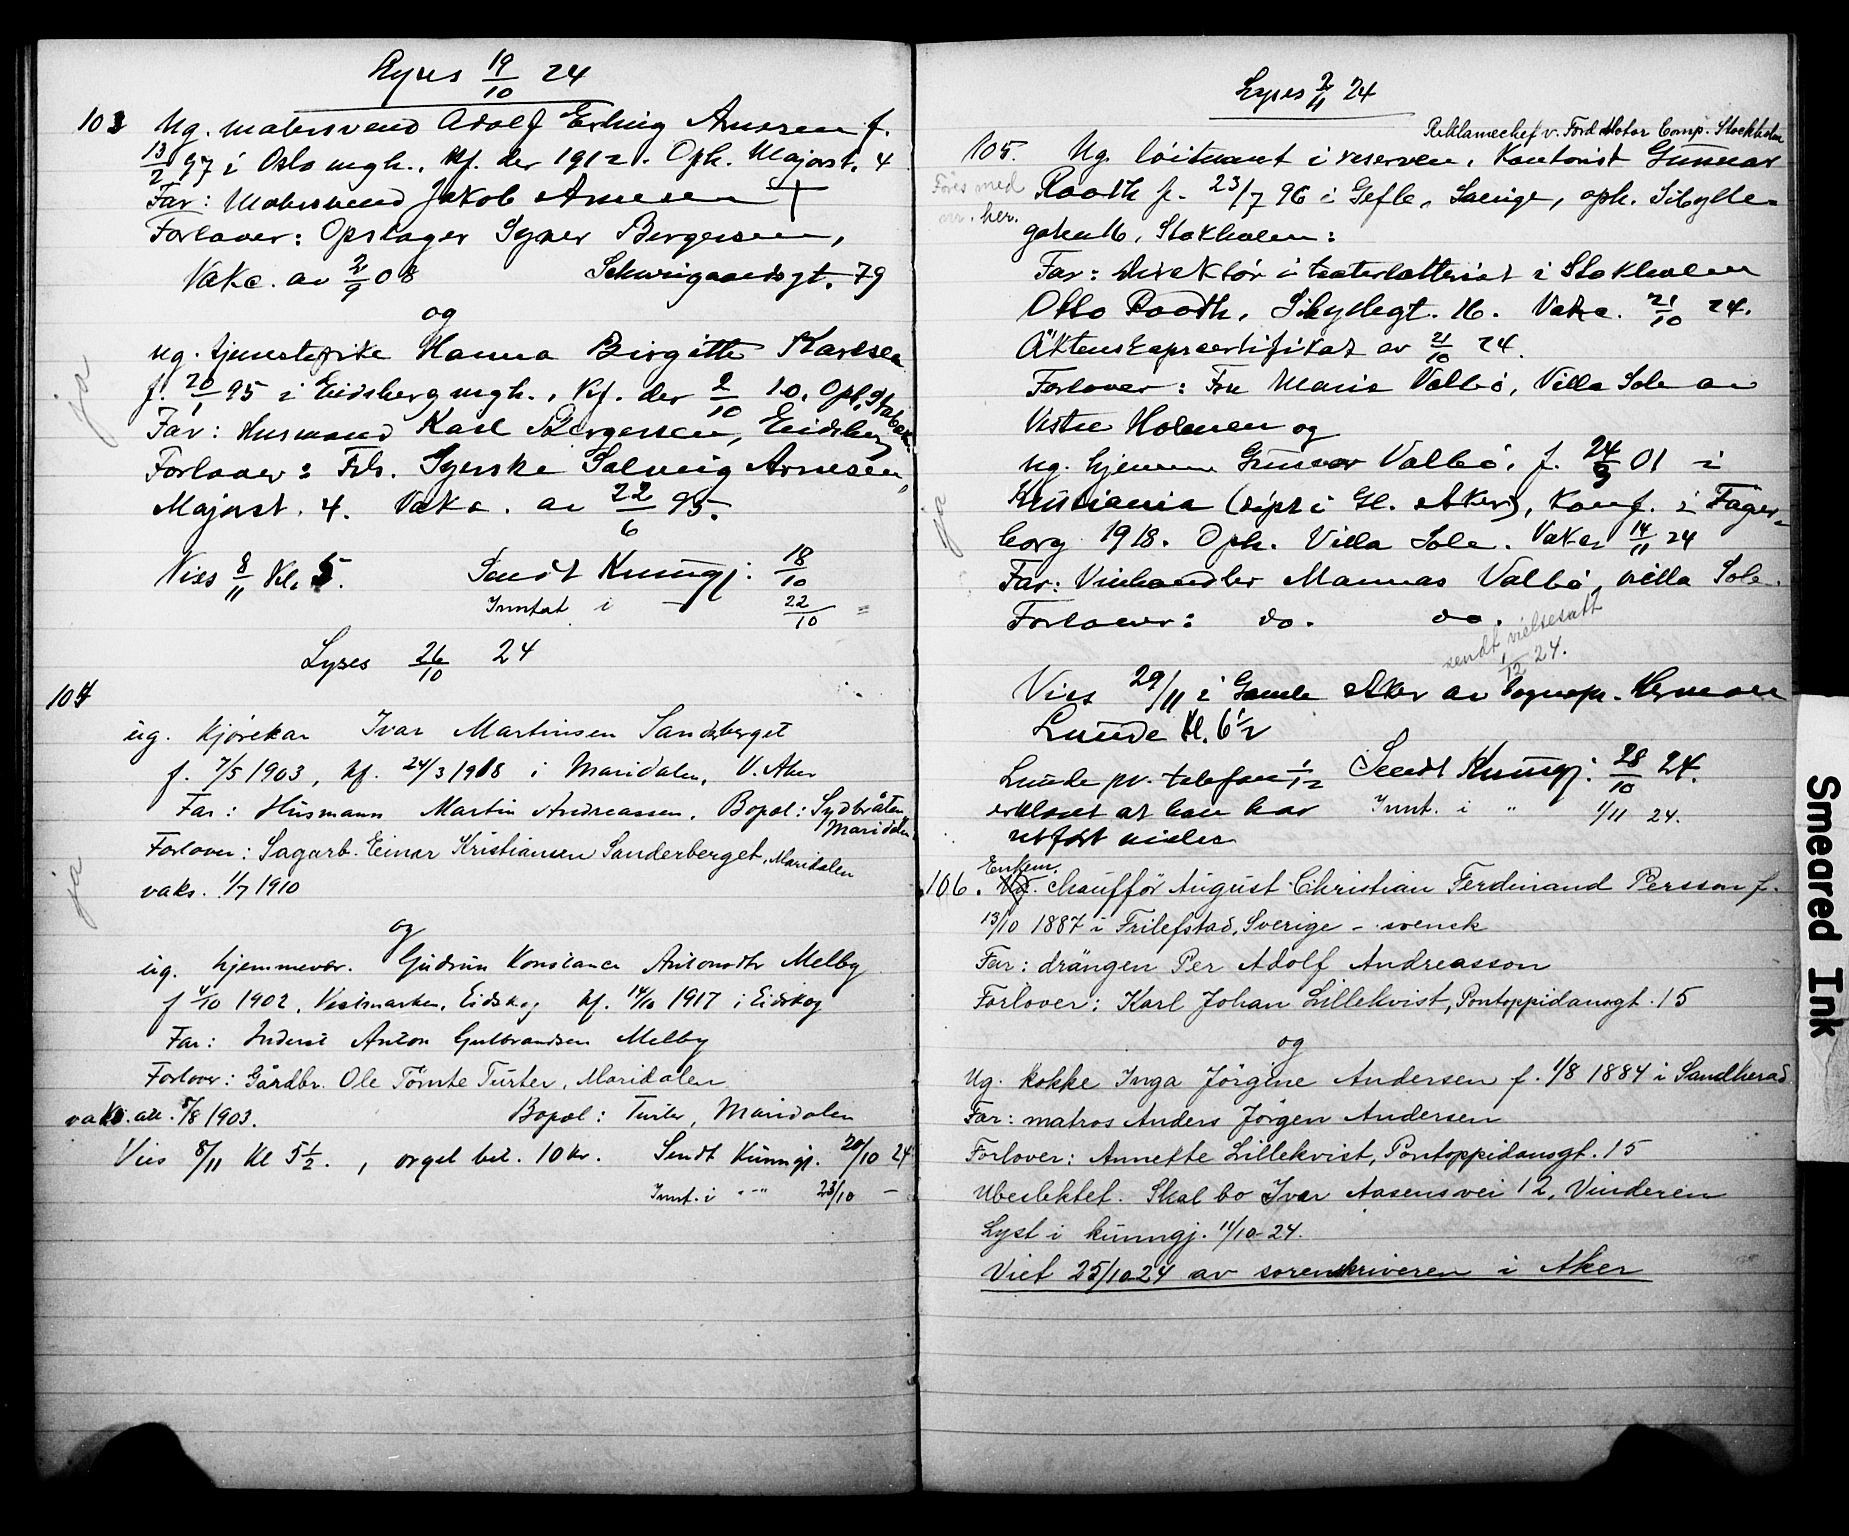 Lyses 19/10 24
103 Ug. malersvend Adolf Erling Arnesen f.
13/2 97 i Oslo mgh., kf. der 1912. Oph. Majorst. 4
Far: Malersvend Jakob Arnesen †
Forlover: Opslager Syver Bergersen,
Vakc. av 2/9 08 Schweigaardsgt. 79
og
ug. tjenestepike Hanna Birgitte Karlsen
f. 20/1 95 i Eidsberg mgh., kf. der 2/10 10. Oph.
Far: Husmand Karl Bergersen, Eidsberg
Forlover: Frk. Synske Solveig Arnesen,
Majorst. 4. Vakc. av 22/6 95.
ja
Vies 8/11 Kl. 5. Sendt Kunngj. 18/10
Inntat i — 22/10 =
Lyses 26/10 24
104
ug. kjørekar Ivar Martinsen Sanderberget
f. 7/5 1903, kf. 24/3 1918 i Maridalen, V. Aker
Far: Husmann Martin Andreassen, Bopæl: Sydbråten, Maridalen
Forlover: Sagarb. Einar Kristiansen Sanderberget, Maridalen
vaks. 1/7 1910
ja
og
ug. hjemmevær. Gudrun Konstance Antonsdtr Melby
f 4/10 1902, Vestmarken, Eidskog kf. 14/10 1917 i Eidskog
Far: Inderst Anton Gulbrandsen Melby
Forlover: Gårdbr. Ole Tømte Turter, Maridalen
vaks. att. 5/8 1903. Bopæl: Turter, Maridalen
Vies 8/11 Kl 5 1/2. , orgel bet. 10 kr. Sendt Kunngj. 20/10 24
Innt. i " " " 23/10 —
Lyses 2/11 24
Reklamechef v. Ford Motor Comp. Stockholm
105. Ug. løitnant i reserven, Kontorist Gunnar
Føres med nr. her.
Raadh f. 23/7 96 i Gefle, Sverige, oph. Sibylle-
gaten 16, Stokholm:
Far: Direktør i teaterlotteriet i Stokholm
Otto Raadh, Sibyllegt. 16. Vakc. 21/10 24.
Äktenskapscertifikat av 21/10 24.
Forlover: Fru Maria Valbø, Villa Sole av
Vestre Holmen og
ug. hjemme Gunvor Valbø, f. 24/9 01 i
Kristiania (døpt i Gl. Aker), konf. i Fager-
borg 1918. Oph. Villa Sole. Vakc. 14/11 24
Far: Vinhandler Mannas Valbø, villa Sole.
ja
Forlover: do. do.
sendt vielsesatt 1/12 24.
Vies 29/11 i Gamle Aker av Sognepr. Herman
Lunde Kl. 6 1/2
Lunde pr. telefon 1/12 Sendt Kunngj. 28/10 24.
erklært at han har Innt. i " 1/11 24.
utført vielsen
Enkem.
106. Ug. chaufför August Christian Ferdinand Persson f.
13/10 1887 i Frilefstad, Sverige - svensk
Far: drängen Per Adolf Andreasson
Forlover: Karl Johan Lillekvist, Pontoppidansgt. 15
og
Ug. kokke Inga Jörgine Andersen f. 1/8 1884 i Sandherad
Far: matros Anders Jørgen Andersen
Forlover: Annette Lillekvist, Pontoppidansgt. 15
Ubeslektet. Skal bo Ivar Aasens vei 12, Vinderen
Lyst i kunngj. 11/10 - 24.
Viet 25/10 24 av sorenskriveren i Aker
Smeared Ink